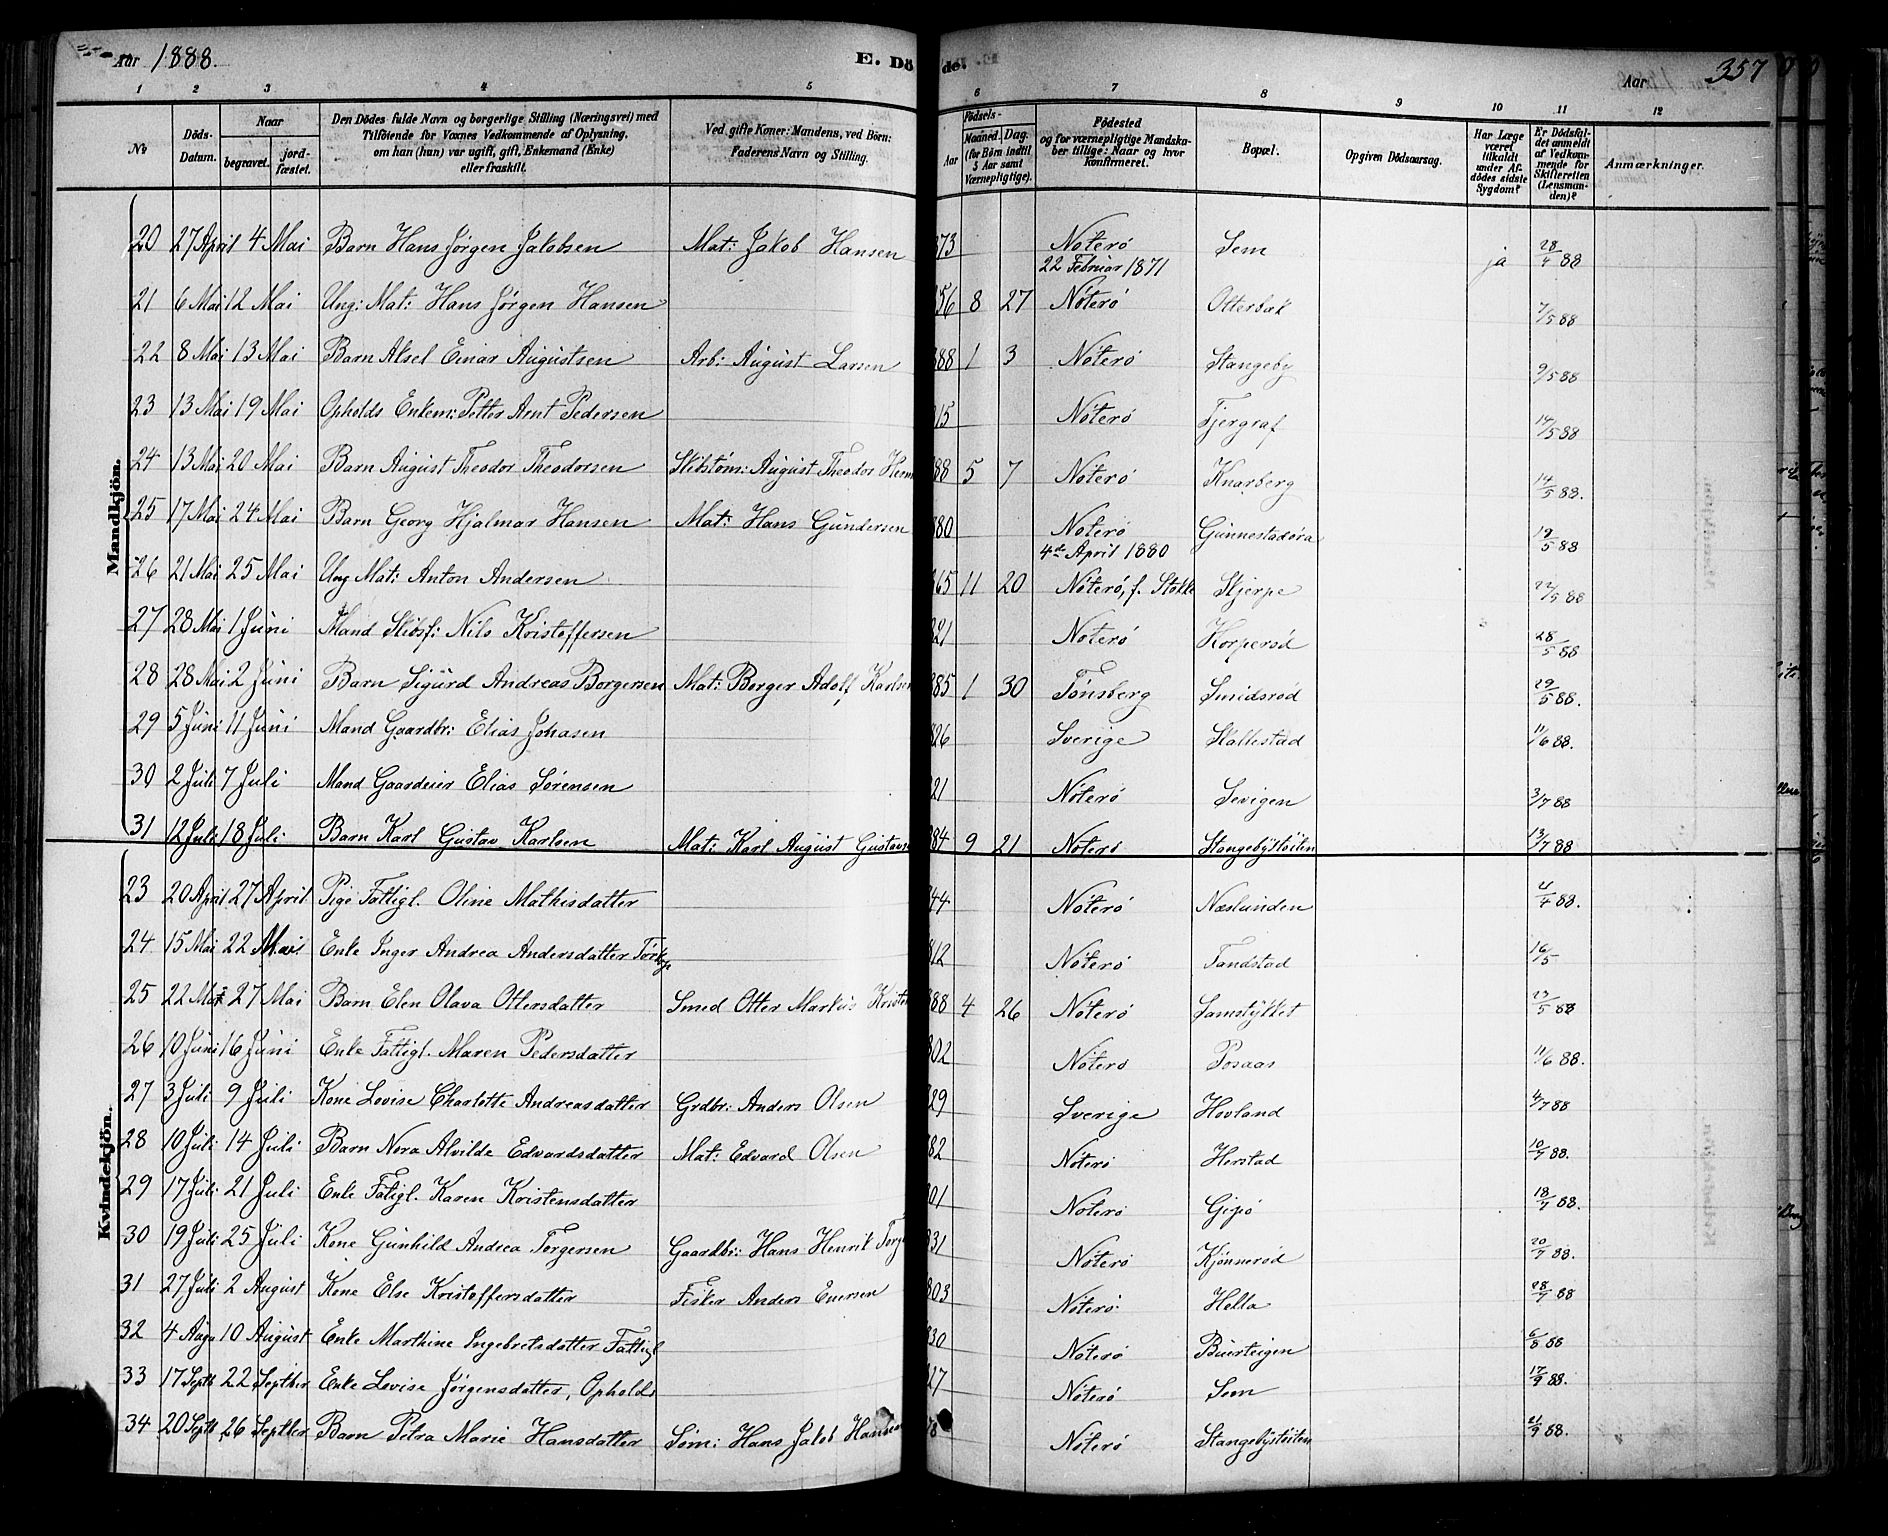 Aar 1888.
E. Dö
de.
Aar
357
1 2 3 4 5 6 7 8 9 10 11 12
№
Döds-Datum.
Naar
begravet. jord-fæstet.
Den Dödes fulde Navn og borgerlige Stilling (Næringsvei) med Tilföiende for Voxnes Vedkommende af Oplysning, om han (hun) var ugift, gift, Enkemand (Enke) eller fraskilt.
Ved gifte Koner: Mandens, ved Börn: Faderens Navn og Stilling.
Aar
Födsels-
Maaned. Dag.
(for Börn indtil 5 Aar samt Værnepligtige).
Födested og for værnepligtige Mandska-ber tillige: Naar og hvor konfirmeret.
Bopæl.
Opgiven Dödsaarsag.
Har Læge været tilkaldt under Af-dödes sidste Sygdom?
Er Dödsfal-det anmeldt af Vedkom-mende for Skifteretten (Lensman-den)?
Anmærkninger.
Mandkjön.
20 27 April 4 Mai Barn Hans Jørgen Jakobsen Mat: Jakob Hansen 873 Noterö 22 Februar 1871 Sem ja 28/4 88
21 6 Mai 12 Mai Ung: Mat: Hans Jørgen Hansen 856 8 27 Nöterö Otterbæk 7/5 88
22 8 Mai 13 Mai Barn Aksel Einar Augustsen Arb: August Larsen 888 1 3 Nöterö Stangeby 9/5 88
23 13 Mai 19 Mai Opholds Enkem: Petter Arnt Pedersen 15 Nöterö Tjergraf 14/5 88
24 13 Mai 20 Mai Barn August Theodor Theodorsen Skibstøm: August Theodor 88 5 7 Nöterö Knarberg 14/5 88.
25 17 Mai 24 Mai Barn Georg Hjalmar Hansen Mat: Hans Gundersen 880 Nöterö 4de April 1880 Gunnestadøra 19/5 88
26 21 Mai 25 Mai Ung Mat: Anton Andersen 865 11 20 Nöterö, f. Stokke Skjerpe 22/5 88
27 28 Mai 1 Juni Mand Skibsf: Nils Kristoffersen 821 Nöterö Horperød 28/5 88
28 28 Mai 2 Juni Barn Sigurd Andreas Borgersen Mat: Borger Adolf Karlsen 885 1 30 Tönsberg Smidsrød 29/5 88.
29 5 Juni 11 Juni Mand Gaardbr: Elias Johasen 826 Sverige Skallestad 11/6 88.
30 2 Juli 7 Juli Mand Gaardeier Elias Sørensen 21 Nöterö Sevigen 3/7 88
31 12 Juli 18 Juli Barn Karl Gustav Karlsen Mat: Karl August Gustavs 884 9 21 Nöterö Stangebystøiten 13/7 88
Kvindekjön.
23 20 April 27 April Pige Fattigl. Oline Mathisdatter 844 Nöterö Næslunden /4 88.
24 15 Mai 22 Mai Enke Inger Andrea Andersdatter 812 Nöterö Tandstad 16/5
25 22 Mai 27 Mai Barn Elen Olava Ottersdatter Smed Otter Markus Kristen 888 4 26 Nöterö Samstykket 23/5 88
26 10 Juni 16 Juni Enke Fattigl. Maren Pedersdatter 802 Nöterö Posaas 11/6 88.
27 3 Juli 9 Juli Kone Lovise Charlotte Andreasdatter Grdbr: Anders Olsen 829 Sverige Hovland 4/7 88
28 10 Juli 14 Juli Barn Nora Alvilde Edvardsdatter Mat: Edvard Olsen 82 Nöterö Herstad 10/7 88.
29 17 Juli 21 Juli Enke Fatigl. Karen Kristensdatter 801 Nöterö Gipø 18/7 88.
30 19 Juli 25 Juli Kone Gunhild Andrea Torgersen Gaardbr: Hans Henrik Torg 831 Nöterö Kjønnerød 20/7 88.
31 27 Juli 2 August Kone Else Kristoffersdatter Fisker Anders Enersen 803 Nöterö Hella 28/7 88
32 4 Aug 10 August Enke Marthine Ingebretsdatter Fattigl 830 Nöterö Buerteigen 6/8 88
33 17 Septb 22 Septber Enke Lovise Jørgensdatter, Opholds 27 Nöterö Sem 17/9 88.
34 20 Septb 26 Septber Barn Petra Marie Hansdatter Søm: Hans Jakob Hansen 78 Nöterö Stangebystøiten 21/9 88.